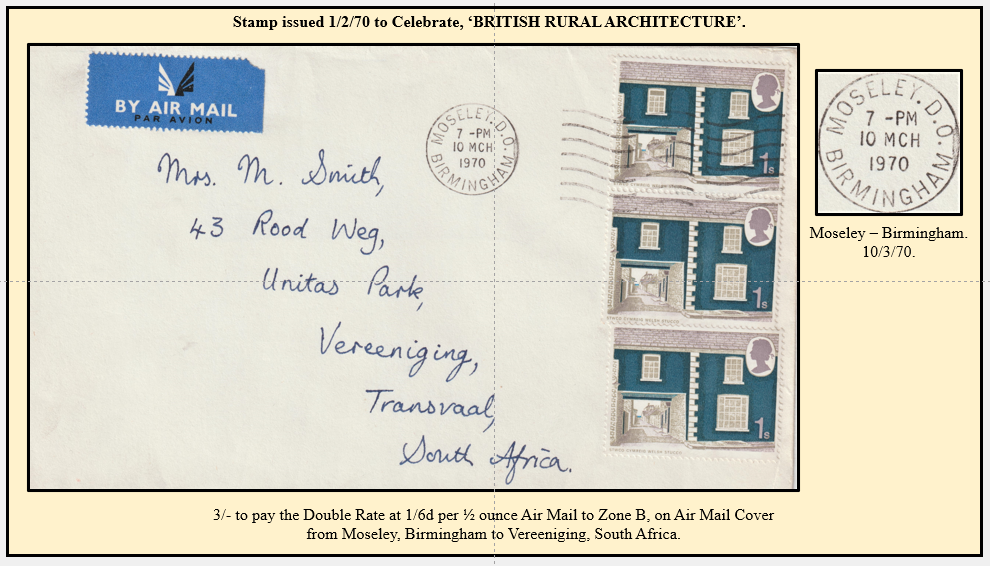 Stamp issued 1/2/70 to Celebrate, ‘BRITISH RURAL ARCHITECTURE’.
BY AIR MAIL
PAR AVION
MOSELEY. D.O.
7 -PM
10 MCH
1970
BIRMINGHAM.
1s
1s
1s
Mrs. M. Smith,
43 Rood Weg,
Unitas Park,
Vereeniging,
Transvaal,
South Africa.
MOSELEY. D.O.
7 -PM
10 MCH
1970
BIRMINGHAM.
Moseley – Birmingham.
10/3/70.
3/- to pay the Double Rate at 1/6d per ½ ounce Air Mail to Zone B, on Air Mail Cover
from Moseley, Birmingham to Vereeniging, South Africa.